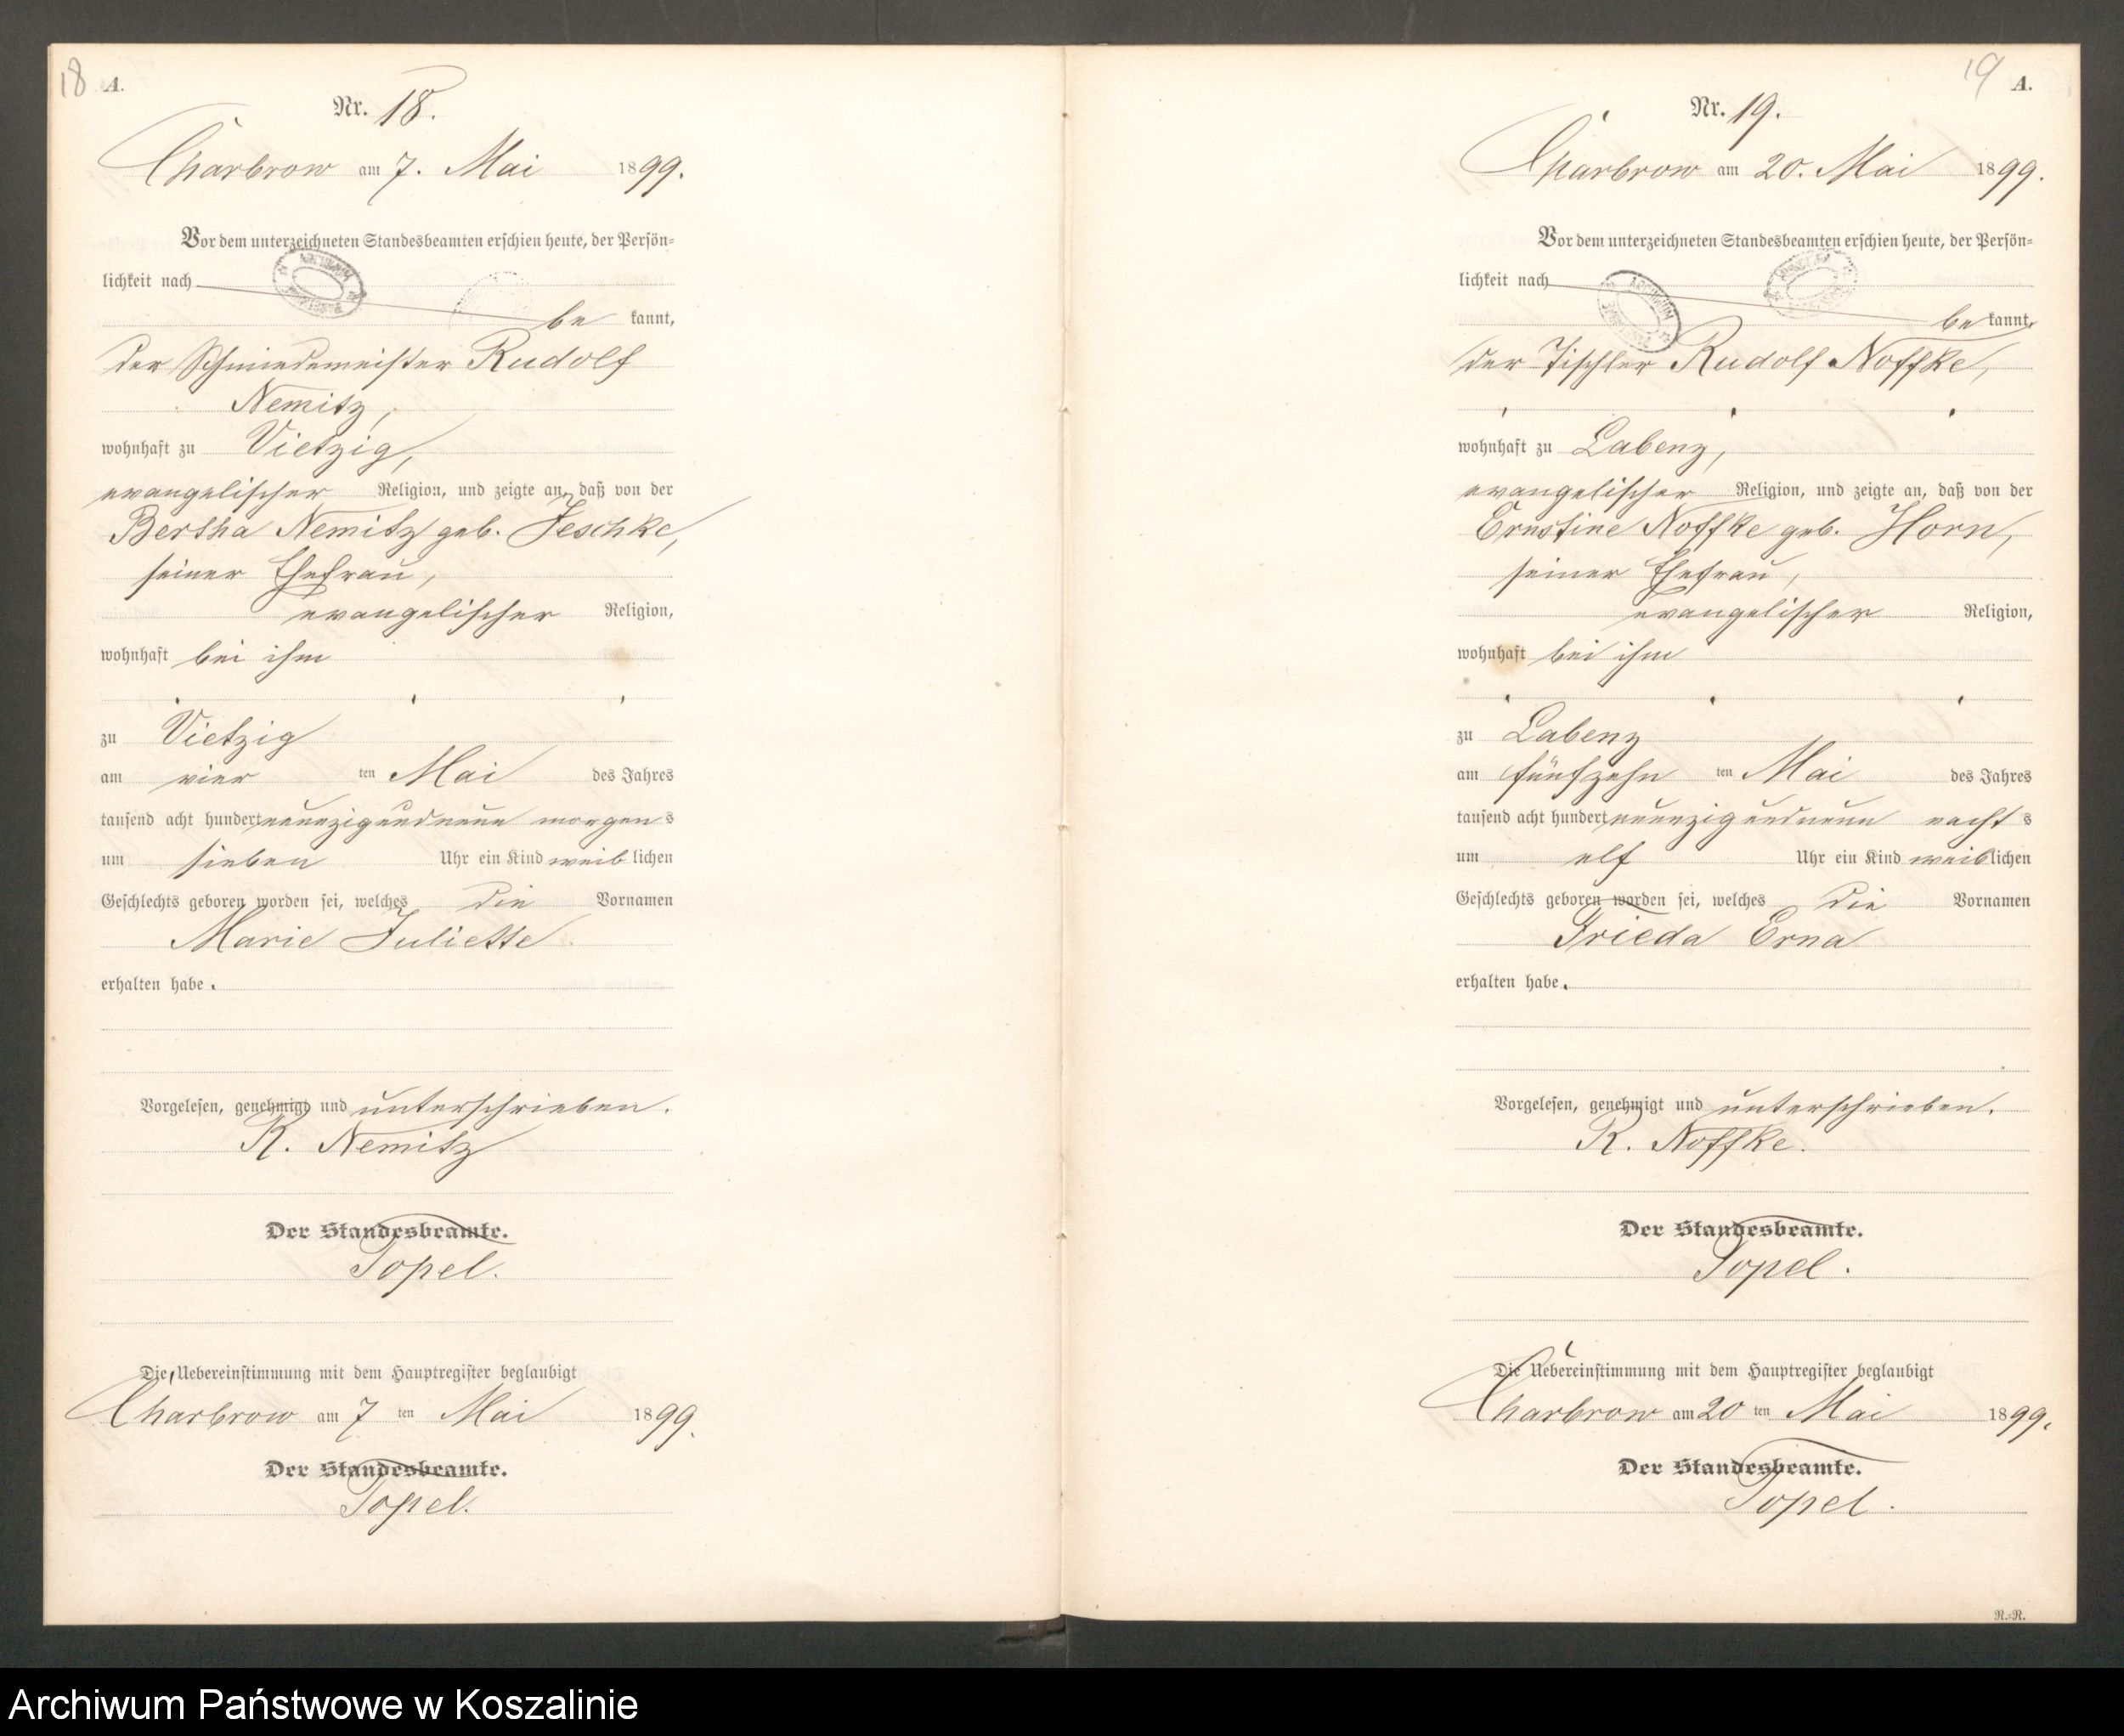 18 A.
Nr. 18.
Charbrow am 7. Mai 1899.
Vor dem unterzeichneten Standesbeamten erschien heute, der Persön=
lichkeit nach
be kannt,
der Schmiedemeister Rudolf
Nemitz,
wohnhaft zu Vietzig,
evangelischer Religion, und zeigte an, daß von der
Bertha Nemitz geb. Jeschke,
seiner Ehefrau,
evangelischer Religion,
wohnhaft bei ihm
zu Vietzig
am vier ten Mai des Jahres
tausend acht hundert neunzigundneun morgens
um sieben Uhr ein Kind weiblichen
Geschlechts geboren worden sei, welches die Vornamen
Marie Juliette
erhalten habe.
Vorgelesen, genehmigt und unterschrieben.
R. Nemitz
Der Standesbeamte.
Topel.
Die Uebereinstimmung mit dem Hauptregister beglaubigt
Charbrow am 7 ten Mai 1899.
Der Standesbeamte.
Topel.
19 A.
Nr. 19.
Charbrow am 20. Mai 1899.
Vor dem unterzeichneten Standesbeamten erschien heute, der Persön=
lichkeit nach
be kannt,
der Tischler Rudolf Noffke,
wohnhaft zu Labenz,
evangelischer Religion, und zeigte an, daß von der
Ernstine Noffke geb. Horn,
seiner Ehefrau,
evangelischer Religion,
wohnhaft bei ihm
zu Labenz
am fünfzehn ten Mai des Jahres
tausend acht hundert neunzigundneun nachts
um elf Uhr ein Kind weiblichen
Geschlechts geboren worden sei, welches die Vornamen
Frieda Erna
erhalten habe.
Vorgelesen, genehmigt und unterschrieben.
R. Noffke.
Der Standesbeamte.
Topel.
Die Uebereinstimmung mit dem Hauptregister beglaubigt
Charbrow am 20 ten Mai 1899.
Der Standesbeamte.
Topel.
R.=R.
Archiwum Państwowe w Koszalinie